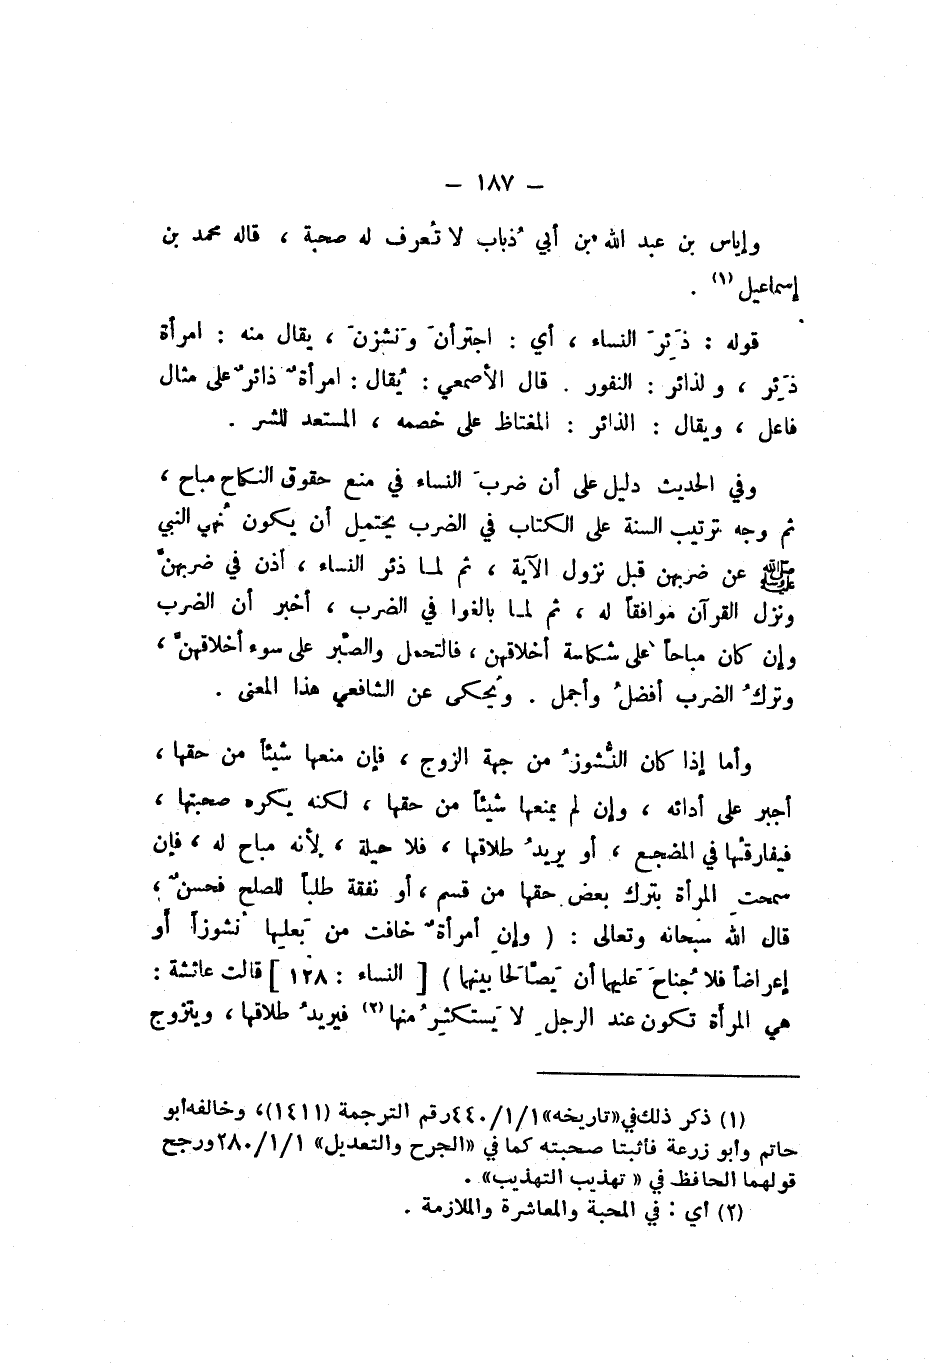 – ١٨٧ –
وإياس بن عبد الله بن أبي ذُباب لا تُعرف له صحبة ، قاله محمد بن
إسماعيل (١) .
قوله : ذَئِرَ النساء ، أي : اجترأنَ ونَشزنَ ، يقال منه : امرأة
ذَئِر ، والذائر : النفور . قال الأصمعي : يُقال : امرأةٌ ذائرٌ على مثال
فاعل ، ويقال : الذائر : المغتاظ على خصمه ، المستعد للشر .
وفي الحديث دليل على أن ضربَ النساء في منع حقوق النكاح مباح ،
ثم وجه ترتيب السنة على الكتاب في الضرب يحتمل أن يكون نُهي النبي
ﷺ عن ضربهن قبل نزول الآية ، ثم لما ذئر النساء ، أذن في ضربهنَّ
ونزل القرآن موافقاً له ، ثم لما بالغوا في الضرب ، أخبر أن الضرب
وإن كان مباحاً على شكاسة أخلاقهن ، فالتحمل والصَّبر على سوء أخلاقهنَّ ،
وتركُ الضرب أفضلُ وأجمل . ويُحكى عن الشافعي هذا المعنى .
وأما إذا كان النُّشوزُ من جهة الزوج ، فإن منعها شيئاً من حقها ،
أجبر على أدائه ، وإن لم يمنعها شيئاً من حقها ، لكنه يكره صحبتها ،
فيفارقُها في المضجع ، أو يريدُ طلاقها ، فلا حيلة ، لأنه مباح له ، فإن
سمحتِ المرأة بترك بعض حقها من قسم ، أو نفقة طلباً للصلح فحسنٌ ،
قال الله سبحانه وتعالى : ( وإنِ أمرأةٌ خافت من بَعلِها نُشوزاً أَو
إعراضاً فلا جُناحَ عَليهما أن يَصَّالَحا بينهما ) [ النساء : ١٢٨ ] قالت عائشة :
هي المرأة تكون عند الرجلِ لا يَستكثِرُ منها (٢) فيريدُ طلاقها ، ويتزوج
(١) ذكر ذلك في «تاريخه» ٤٤٠/١/١ رقم الترجمة (١٤١١)، وخالفه أبو
حاتم وأبو زرعة فأثبتا صحبته كما في «الجرح والتعديل» ٢٨٠/١/١ ورجح
قولهما الحافظ في « تهذيب التهذيب» .
(٢) أي : في المحبة والمعاشرة والملازمة .